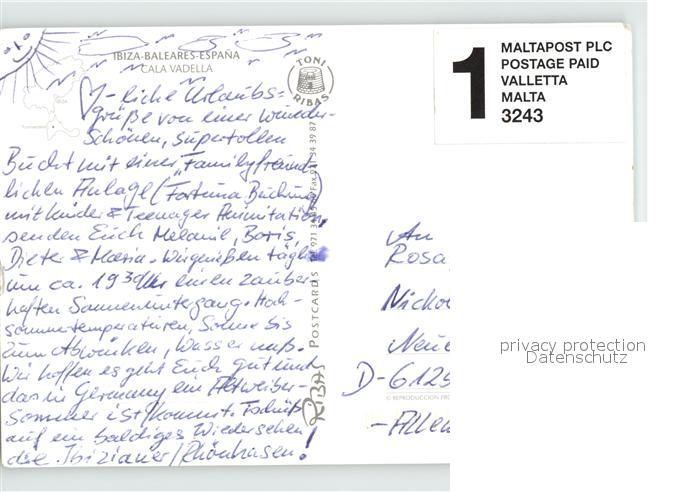 IBIZA-BALEARES-ESPAÑA
CALA VADELLA
TONI RIBAS
-liche Urlaubs-
grüße von einer wunder-
schönen, supertollen
Bucht mit einer "Familyfreund-
lichen Anlage (Fortuna Buchung)
mit Kinder & Teenager Animation,
senden Euch Melanie, Boris,
Dieter & Maria. Wir genießen täglich
um ca. 19 30 Uhr einen zauber-
haften Sonnenuntergang. Hoch-
sommertemperaturen, Sonne bis
zum Abwinken, Wasser naß.
Wir hoffen es geht Euch gut und
das in Germany ein Altweiber-
Sommer ist/kommt. Tschüß
auf ein baldiges Wiedersehen!
die Ibizianer/Rhönhasen!
POSTCARDS
RIBAS
1
MALTAPOST PLC
POSTAGE PAID
VALLETTA
MALTA
3243
An
Rosa
Nicko
Neue
D-6129
-Allem
privacy protection
Datenschutz